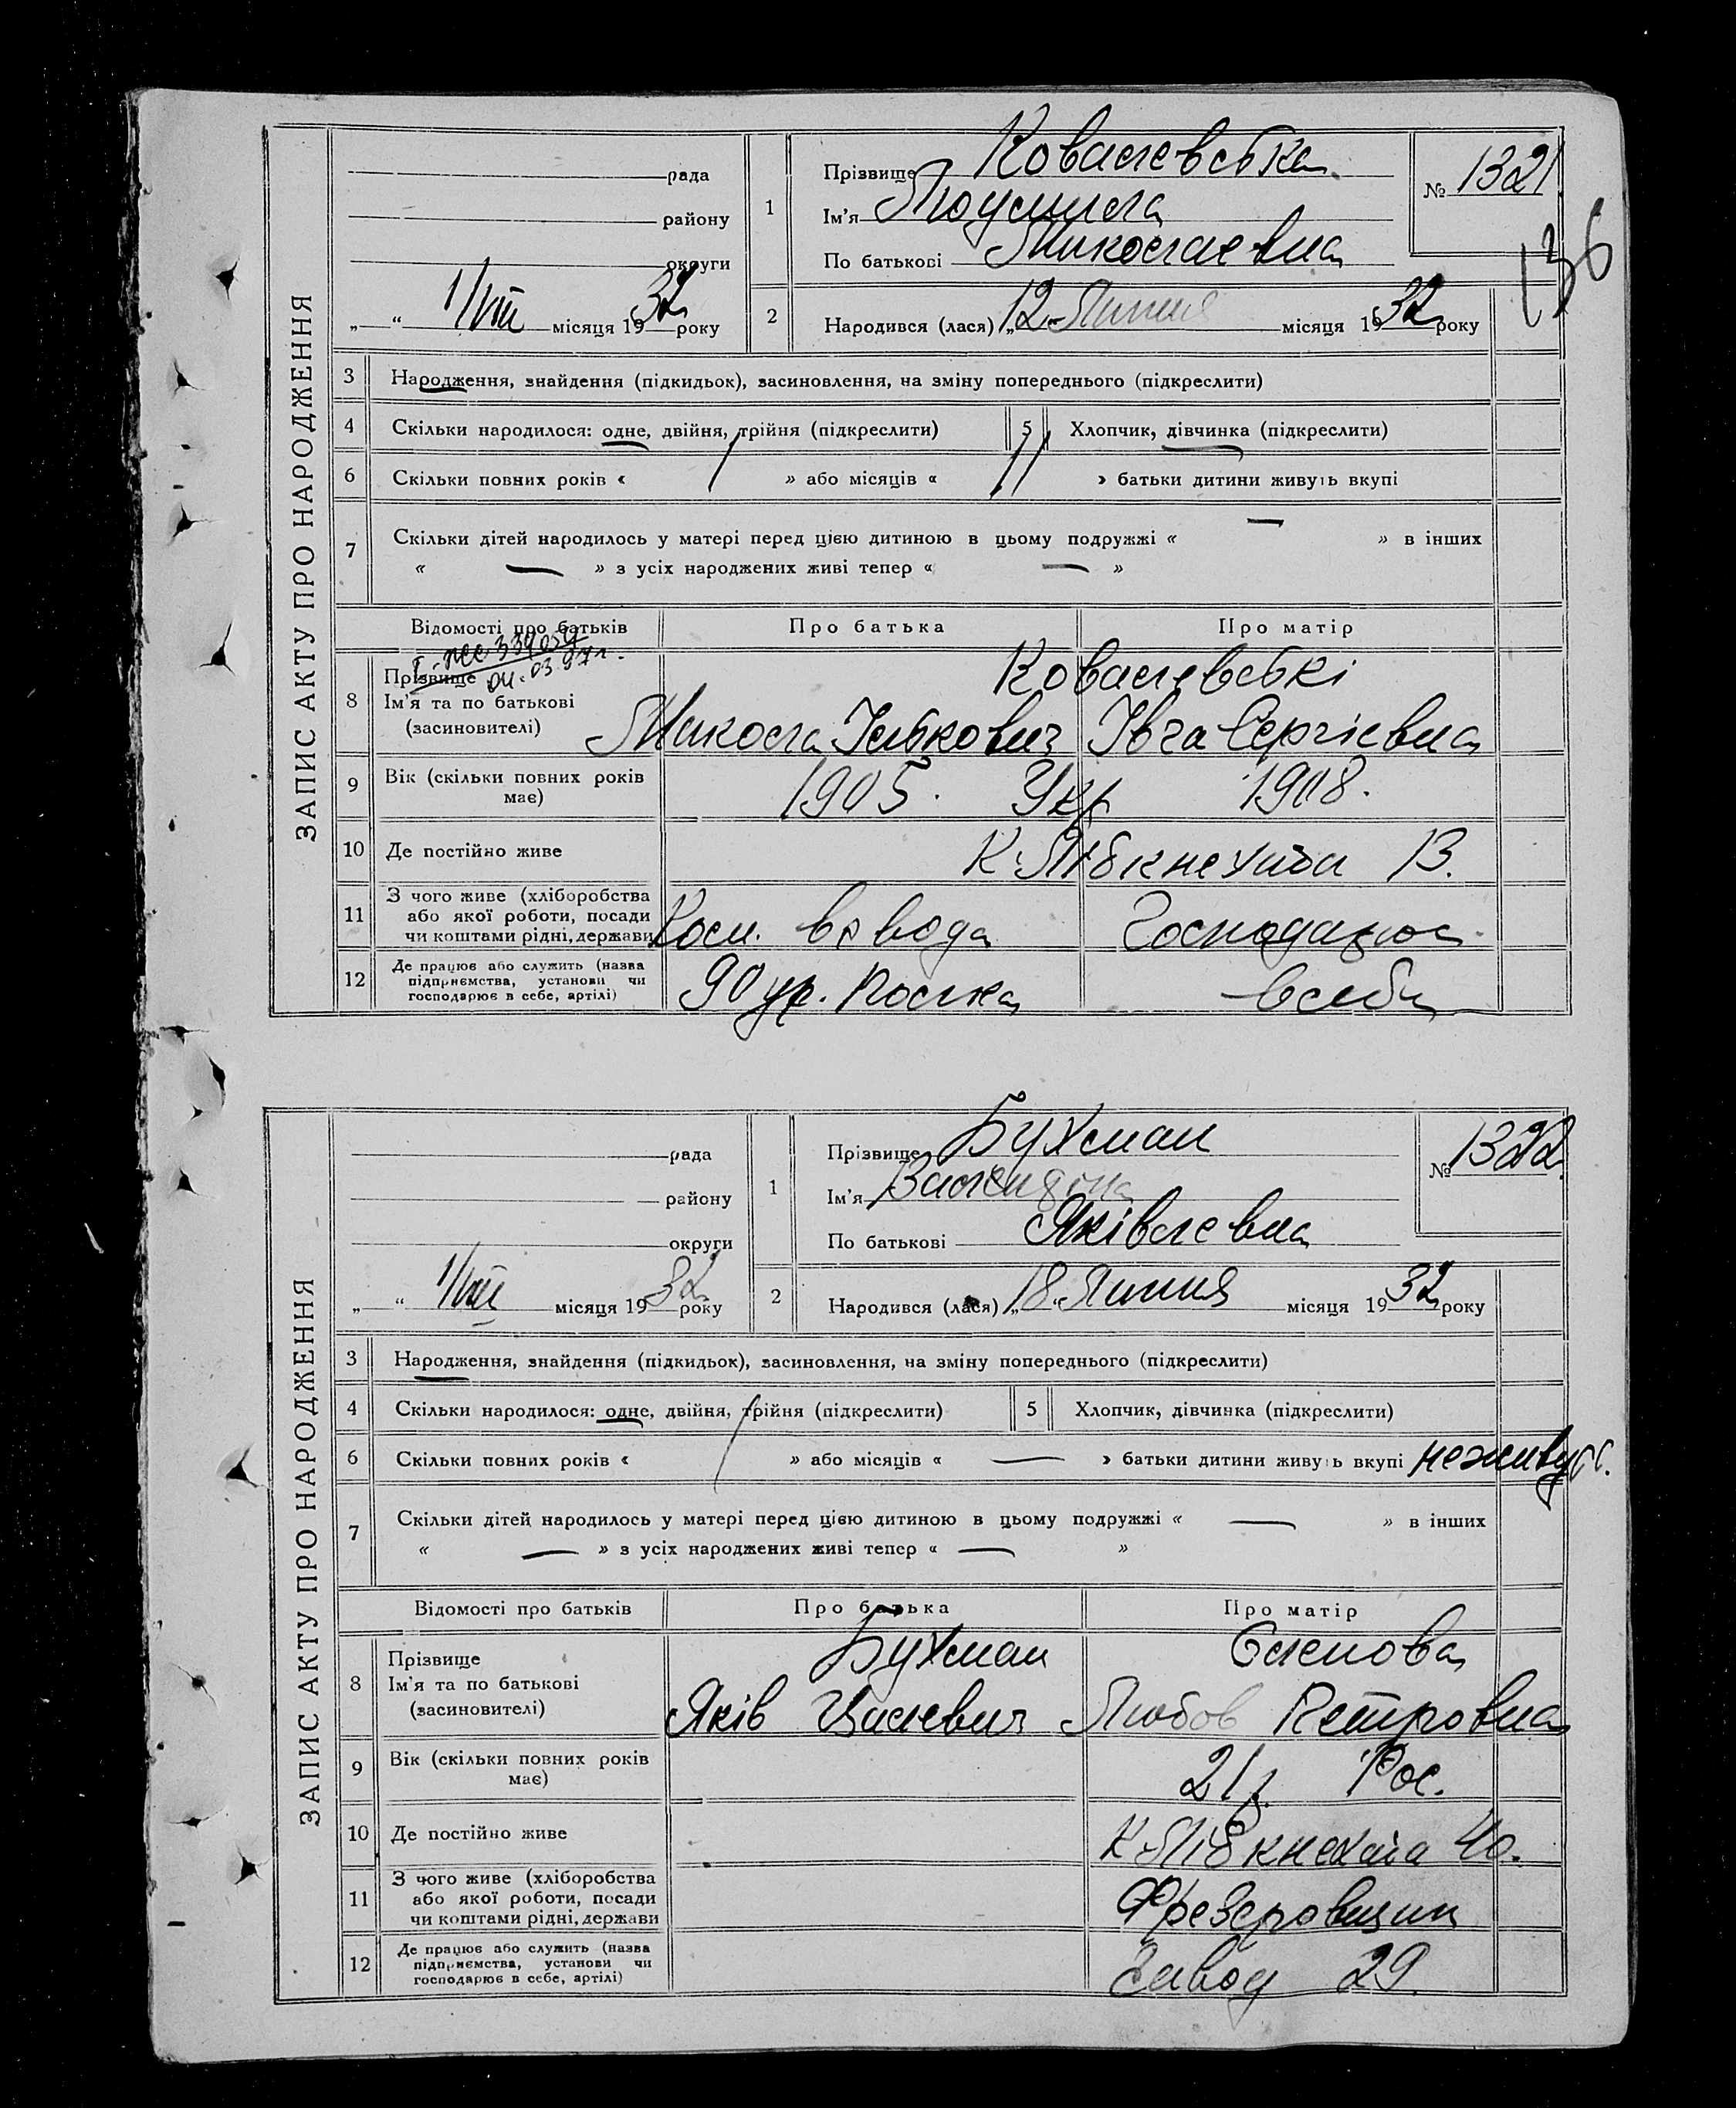 ЗАПИС АКТУ ПРО НАРОДЖЕННЯ
рада
району
округи
„ “ 1/VIII місяця 1932 року
1
Прізвище Ковалевська
Ім'я Людмила
По батькові Миколаевна
№ 1321
136
2
Народився (лася) „12 Липня місяця 1932 року
3 Народження, знайдення (підкидьок), засиновлення, на зміну попереднього (підкреслити)
4 Скільки народилося: одне, двійня, трійня (підкреслити)
5 Хлопчик, дівчинка (підкреслити)
6 Скільки повних років « » або місяців « » батьки дитини живуть вкупі
7 Скільки дітей народилось у матері перед цією дитиною в цьому подружжі « — » в інших
« — » з усіх народжених живі тепер « — »
Відомості про батьків Про батька Про матір
339059
04.03.97г.
8 Прізвище Ковалевські
Ім'я та по батькові
(засиновителі)
Микола Сергієвна
9 Вік (скільки повних років має) 1905. Укр 1908.
10 Де постійно живе К Лібкнехта 13.
11 З чого живе (хліборобства
або якої роботи, посади
чи коштами рідні, держави
Ком. взвода
12 Де працює або служить (назва
підприємства, установи чи
господарює в себе, артілі)
90 полка
ЗАПИС АКТУ ПРО НАРОДЖЕННЯ
рада
району
округи
„ “ 1/VIII місяця 1932 року
1
Прізвище Бухман
Ім'я Валендіна
По батькові Яківлевна
№ 1322
2
Народився (лася) „18 Липня місяця 1932 року
3 Народження, знайдення (підкидьок), засиновлення, на зміну попереднього (підкреслити)
4 Скільки народилося: одне, двійня, трійня (підкреслити)
5 Хлопчик, дівчинка (підкреслити)
6 Скільки повних років « » або місяців « — » батьки дитини живуть вкупі неживуть.
7 Скільки дітей народилось у матері перед цією дитиною в цьому подружжі « — » в інших
« — » з усіх народжених живі тепер « — »
Відомості про батьків Про батька Про матір
8 Прізвище Бухман
Ім'я та по батькові
(засиновителі)
Яків Любов Петровна
9 Вік (скільки повних років має) 21 р. Рос.
10 Де постійно живе К Лібкнехта 40.
11 З чого живе (хліборобства
або якої роботи, посади
чи коштами рідні, держави
Фрезеровщик
12 Де працює або служить (назва
підприємства, установи чи
господарює в себе, артілі)
Завод 29.